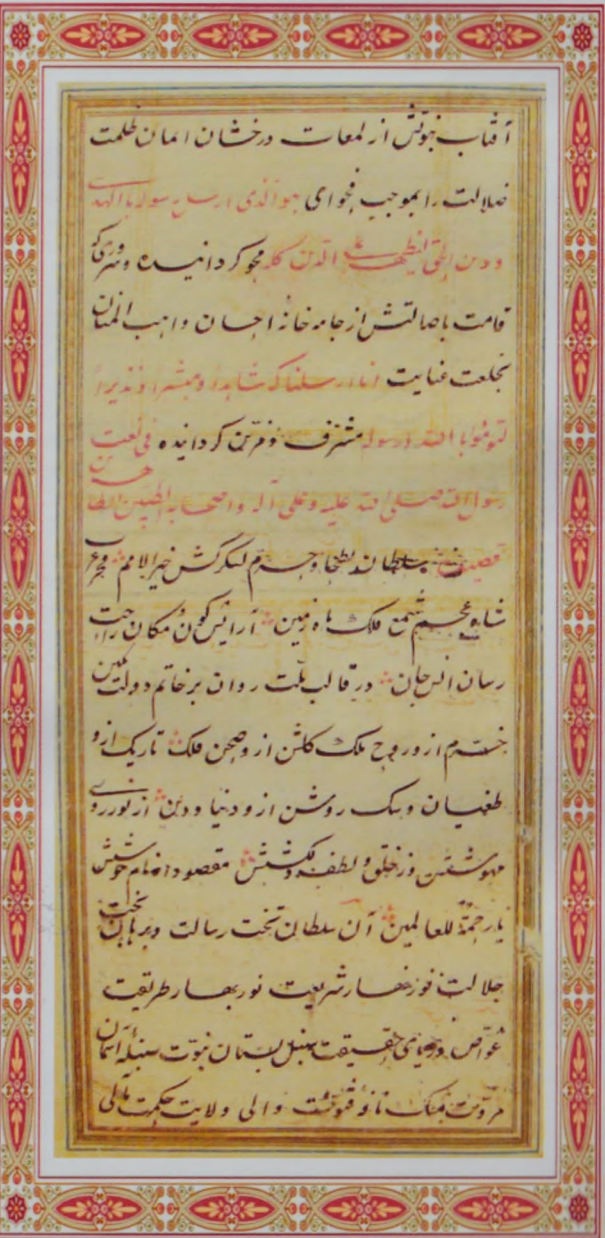 آفتاب نبوتش از لمعات درخشان ایمان ظلمت
ضلالت را بموجب فحوای هو الذی ارسل رسوله بالهدی
و دین الحق لیظهره علی الدین کله محو گردانیده و سروری
قامت باصالتش از جامه خانۀ احسان واهب المنان
بخلعت عنایت انا ارسلناک شاهدا و مبشرا و نذیرا
لتومنوا بالله و رسوله مشرف و مزین گردانیده فی نعت
رسول الله صلی الله علیه و علی آله و اصحابه الطیبین الطاهرین
سلطان بطحا و حرم لشکرکش خیر الامم
شاه عجم شمع فلک ماه زمین آرایش کون و مکان راحت
رسان انس و جان در قالب ملت روان بر خاتم دولت نگین
خرم ازو روح ملک گلشن ازو صحن فلک تاریک ازو
طغیان و شک روشن ازو دنیا و دین از نور روی
مهوشش وز خلق و لطف دلکشش مقصود
یا رحمة للعالمین آن سلطان تخت رسالت و برهان
جلالت شریعت نوبهار طریقت
غواص دریای حقیقت سنبل بستان نبوت
مروت مشک نافۀ فتوت والی ولایت حکمت